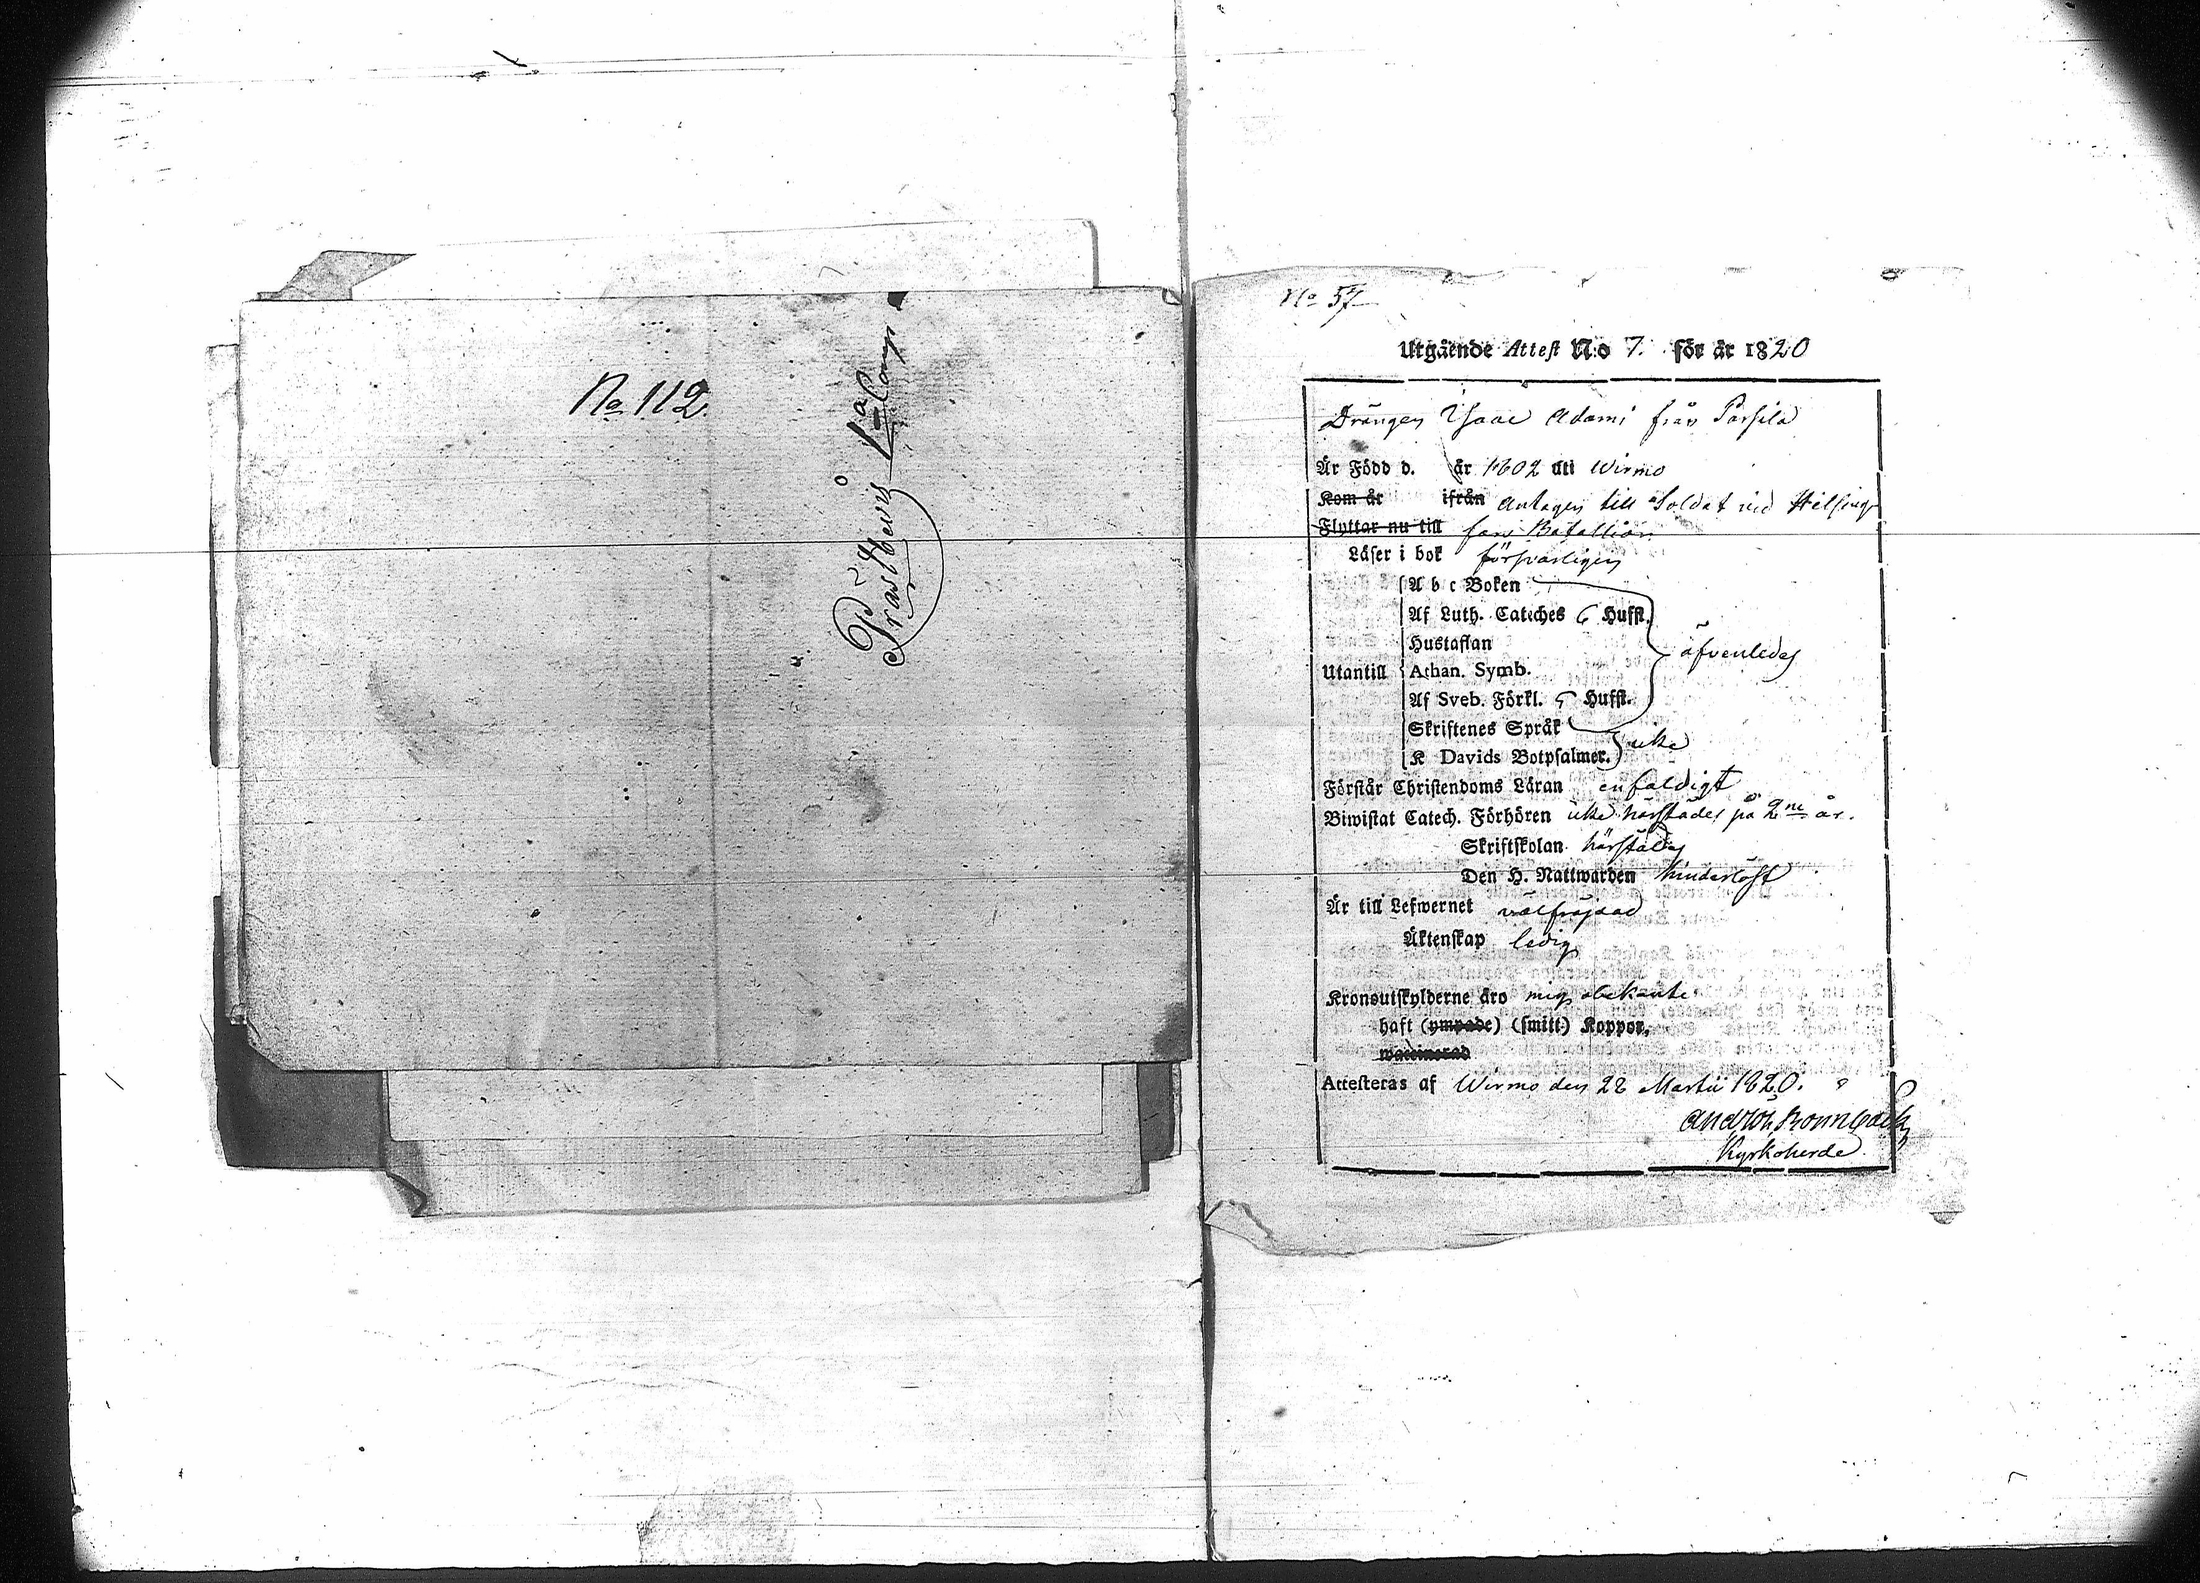 No 112
Prästbevis 1a Comp
No 57
Utgående Attest N:o 7. för år 1820
Drängen Isaac Adami från Parsila
Är Född d. år 1802 uti Wirmo
Kom år ifrån antagen till Soldat vid Helsing-
Flyttar nu till fors Bataillion
Läser i bok försvarligen
A b c Boken
Af Luth. Cateches Hufst.
Hustaflan
äfvenledes
Utantill Athan. Symb.
Af Sveb. Förkl. Hufst.
Skriftenes Språk
icke
K Davids Botpsalmer.
Förstår Christendoms Läran enfaldigt
Biwistat Catech. Förhören icke härstädes på 2ne år.
Skriftskolan härstädes
Den H. Nattwarden hinderlöst
Är till Lefwernet välfräjdad
Äktenskap ledig
Kronoutskylderne äro mig obekante
haft (ympade) (smitt-) Koppor,
waccinerad
Attesteras af Wirmo den 28 Martii 1820.
Kyrkoherde